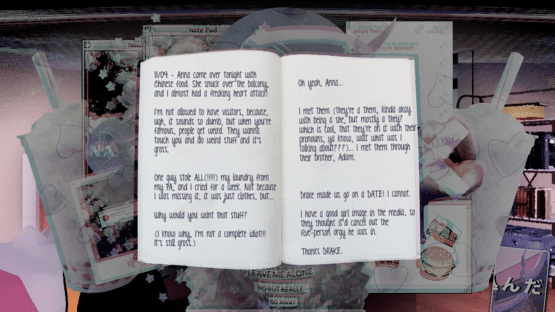 Note Pad
11/04 - Anna came over tonight with
chinese food. She snuck over the balcony,
and I almost had a freaking heart attack!
I'm not allowed to have visitors, because,
ugh, it sounds so dumb, but when you're
famous, people get weird. They wanna
touch you and do weird stuff and it's
gross.
One guy stole ALL(!!!!) my laundry from
my PA, and I cried for a week. Not because
I was missing it, it was just clothes, but...
Why would you want that stuff?
(I know why, I'm not a complete idiot!!!
It's still gross.)
Oh yeah, Anna...
I met them (they're a them, kinda okay
with being a she, but mostly a they?
which is cool, that they're on it with their
pronouns, ya know, wait what was I
talking about???)... I met them through
their brother, Adam.
Drake made us go on a DATE! I cannot.
I have a good girl image in the media, so
they thought it'd cancel out the
five-person orgy he was in.
Thanks DRAKE.
LEAVE ME ALONE
NO BUT REALLY
GO AWAY
んだ